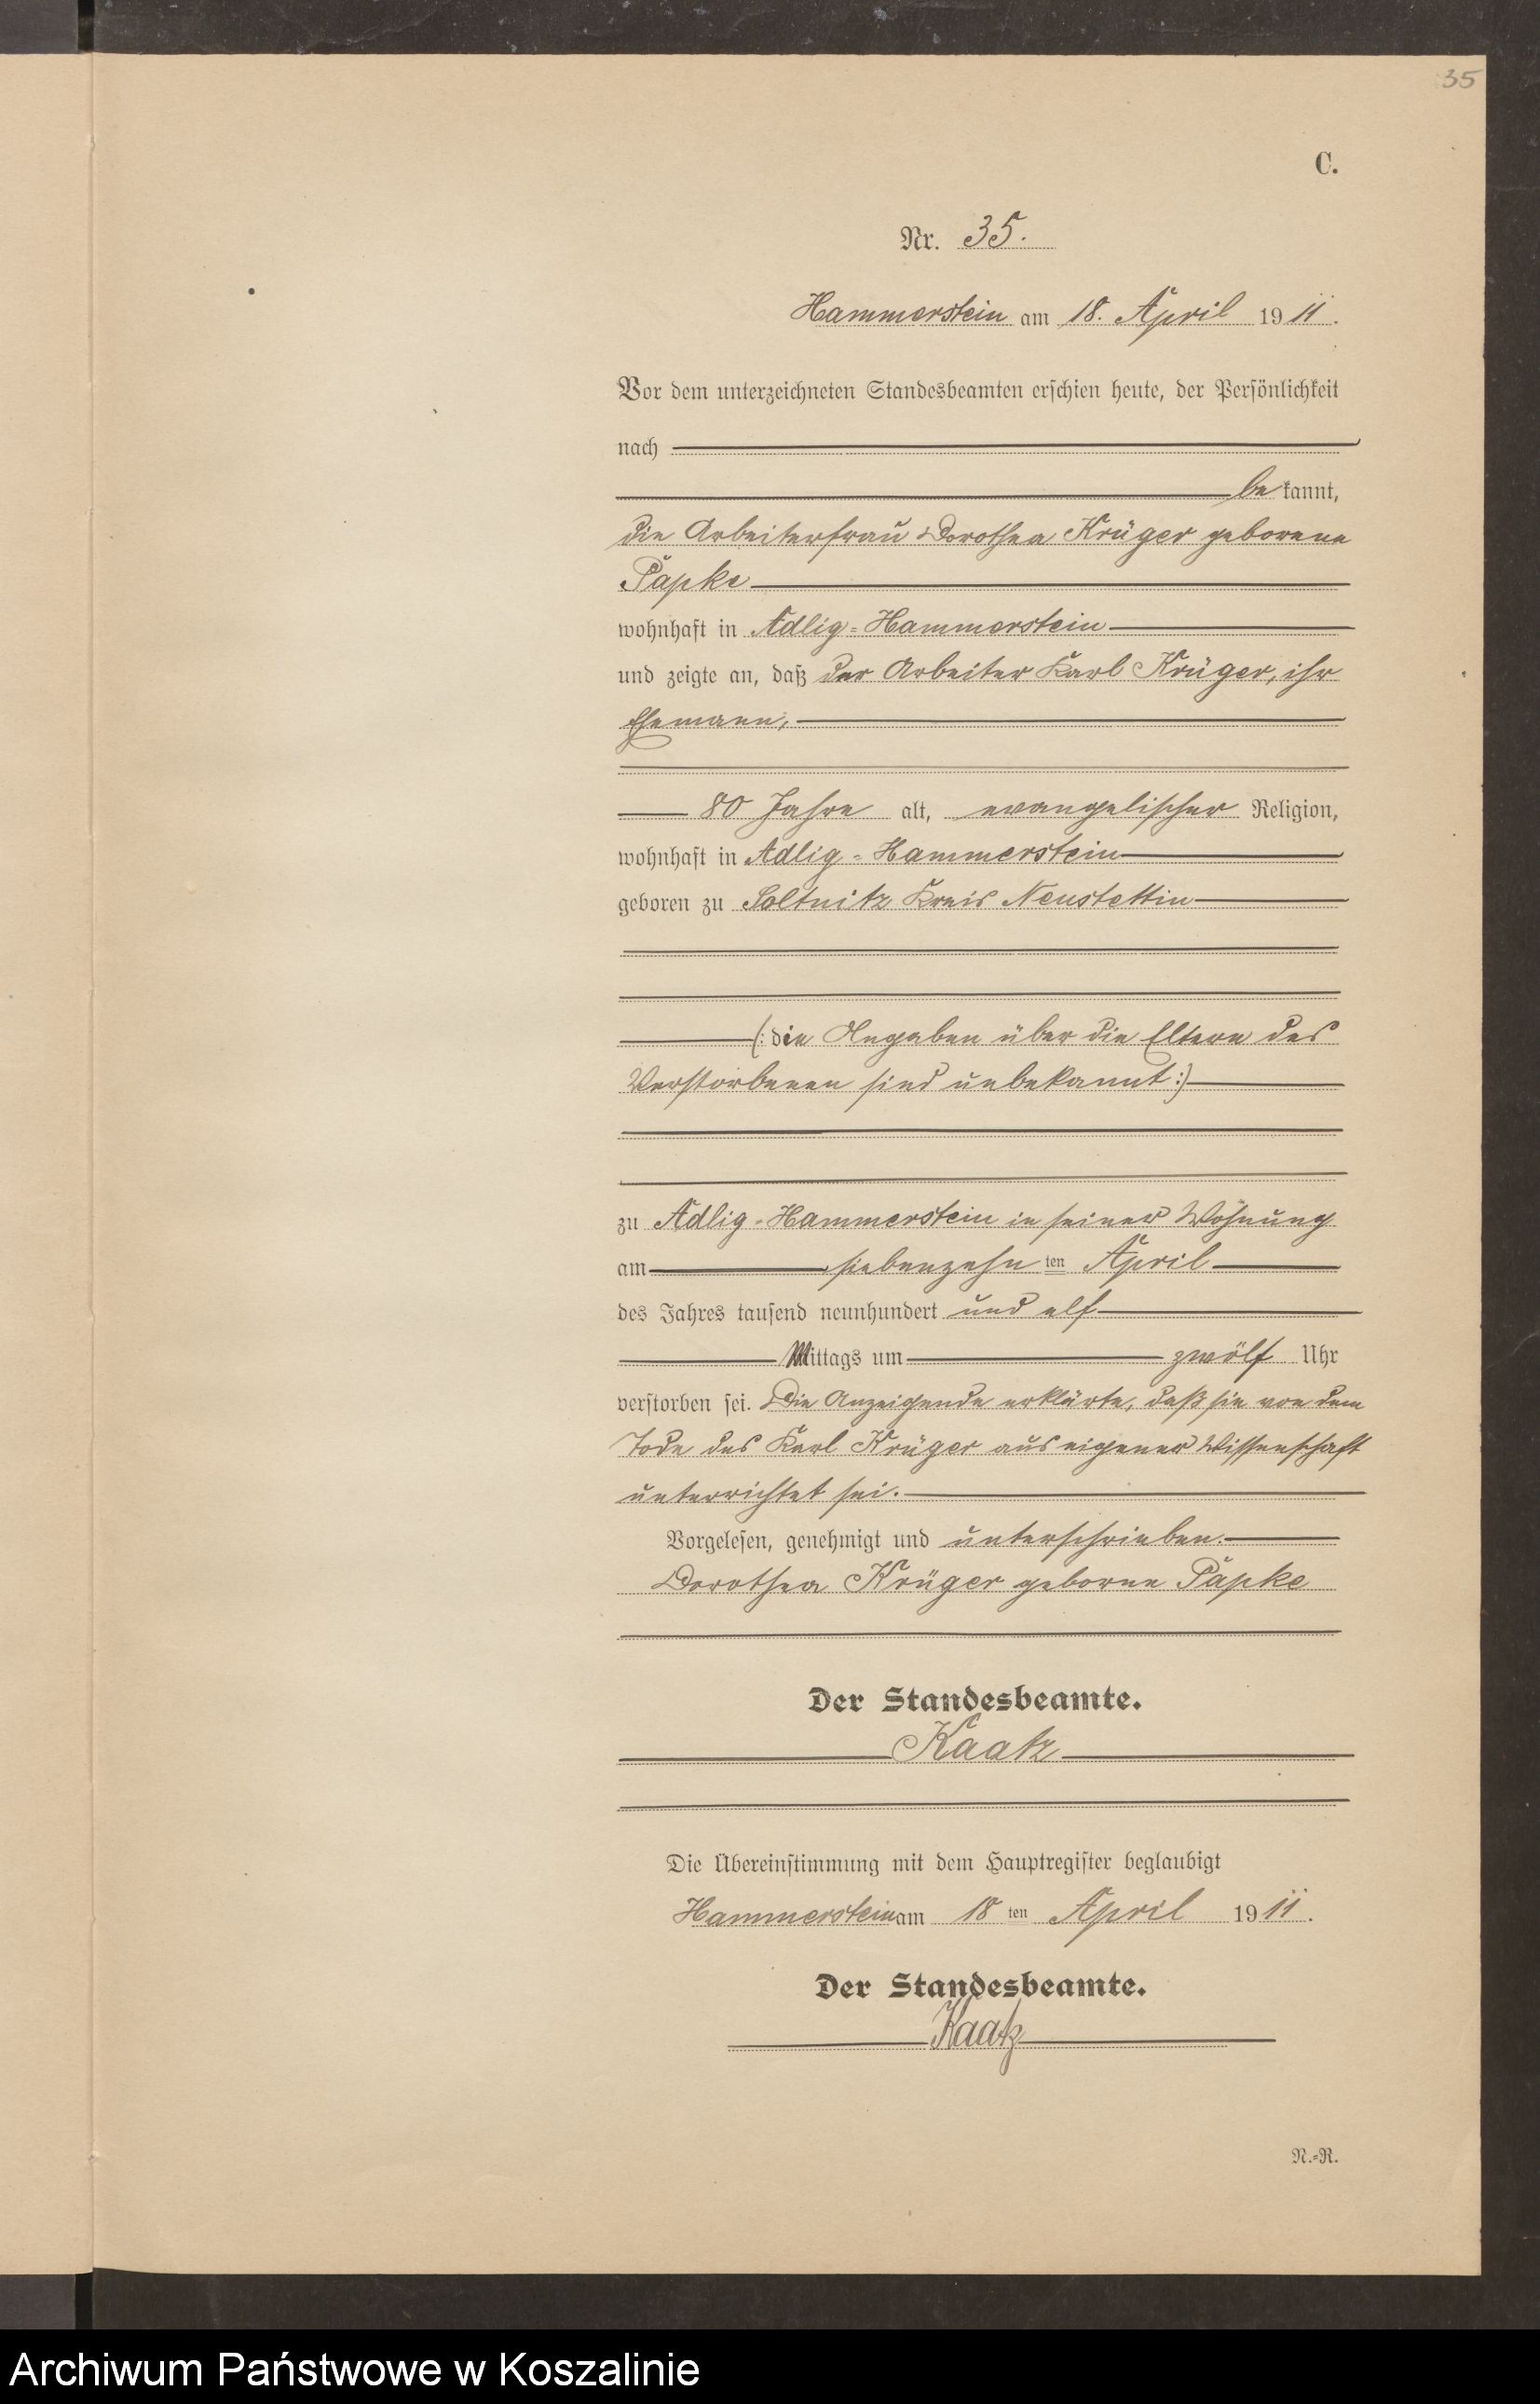 35
C.
Nr. 35.
Hammerstein am 18. April 1911.
Vor dem unterzeichneten Standesbeamten erschien heute, der Persönlichkeit
nach
bekannt,
die Arbeiterfrau Dorothea Krüger geborene
Päpke
wohnhaft in Adlig-Hammerstein
und zeigte an, daß der Arbeiter Karl Krüger, ihr
Ehemann,
80 Jahre alt, evangelischer Religion,
wohnhaft in Adlig-Hammerstein
geboren zu Soltnitz Kreis Neustettin
(: die Angaben über die Eltern des
Verstorbenen sind unbekannt :)
zu Adlig-Hammerstein in seiner Wohnung
am siebenzehnten April
des Jahres tausend neunhundert und elf
Mittags um zwölf Uhr
verstorben sei. Die Anzeigende erklärte, daß sie von dem
Tode des Karl Krüger aus eigener Wissenschaft
unterrichtet sei.
Vorgelesen, genehmigt und unterschrieben.
Dorothea Krüger geborne Päpke
Der Standesbeamte.
Kaatz
Die Übereinstimmung mit dem Hauptregister beglaubigt
Hammerstein am 18ten April 1911.
Der Standesbeamte.
Kaatz
N.-R.
Archiwum Państwowe w Koszalinie